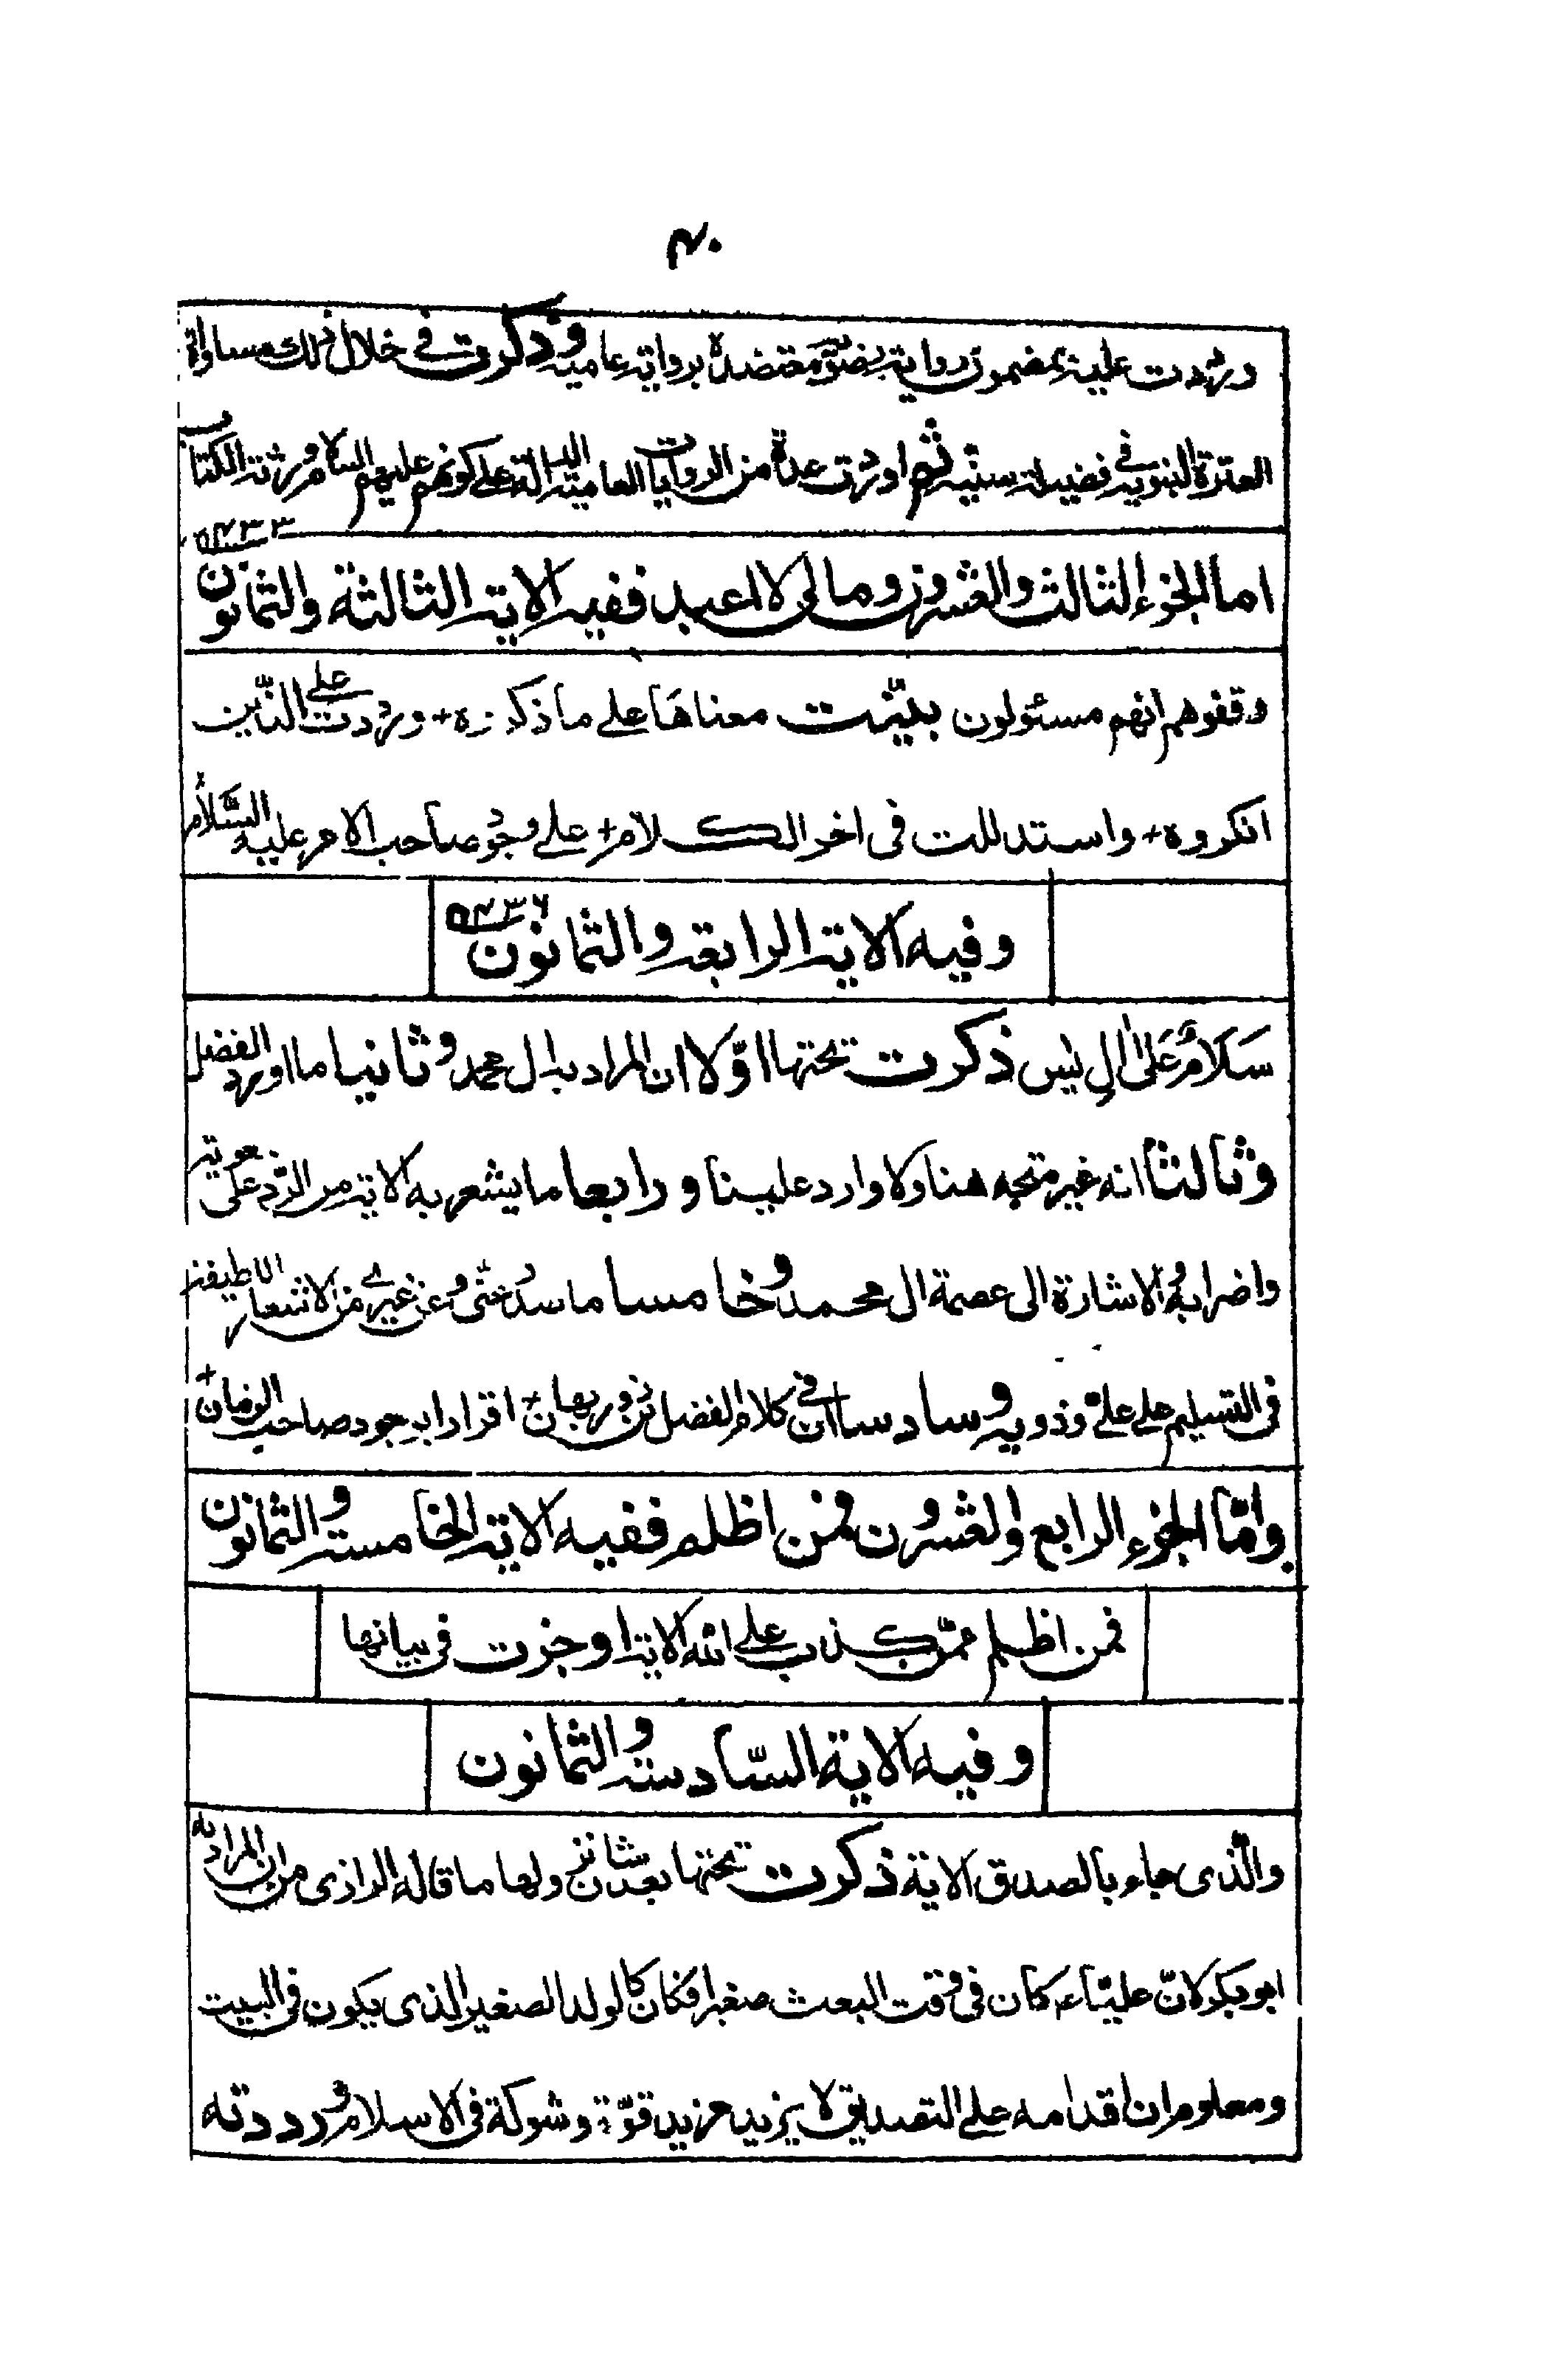 ۴۰
ورددت عليه بمضمون رواية رضوية معتضدة برواية عامية وذكرت في خلال ذلك مساواة
العترة النبوية في فضيلة سنية ثم اوردت عدة من الروايات العامية الدالة على كونهم عليهم السلام ورثة الكتاب
اما الجزء الثالث والعشرون ومالى لا اعبد ففيه الاية الثالثة والثمانون
وقفوهم انهم مسئولون بيّنت معناها على ما ذكروه + ورددت على الذين
انكروه + واستدللت فى اخر الكلام + على وجود صاحب الامر عليه السّلام
وفيه الاية الرابعة والثمانون
سَلامٌ عَلىٰ اٰلِ يٰس ذكرت تحتها اوّلا ان المراد به ال محمد وثانيا ما اورد الفضل
وثالثا انه غير متجه هنا ولا وارد علينا ورابعا ما يشعر به الاية من الرّد على معوية
واضرابه والاشارة الى عصمة ال محمد وخامسا ما سدّ عنّى وعن غيرى من الاشعار اللطيفة
فى التسليم على علىّ وذويه وسادسا ان فى كلام الفضل بن روزبهان + اقرارا بوجود صاحب الزمان +
وامّا الجزء الرابع والعشرون فمن اظلم ففيه الاية الخامسة والثمانون
فمن اظلم ممّن كذب على الله الاية اوجزت فى بيانها
وفيه الاية السّادسة والثمانون
والّذى جاء بالصدق الاية ذكرت تحتها بعد شان نزولها ما قاله الرازى من ان المراد به
ابو بكر لانّ عليّا ع كان فى وقت البعث صغيرا فكان كالولد الصغير الذى يكون فى البيت
ومعلوم ان اقدامه على التصديق لا يزيد مزيد قوّة وشوكة فى الاسلام ورددته